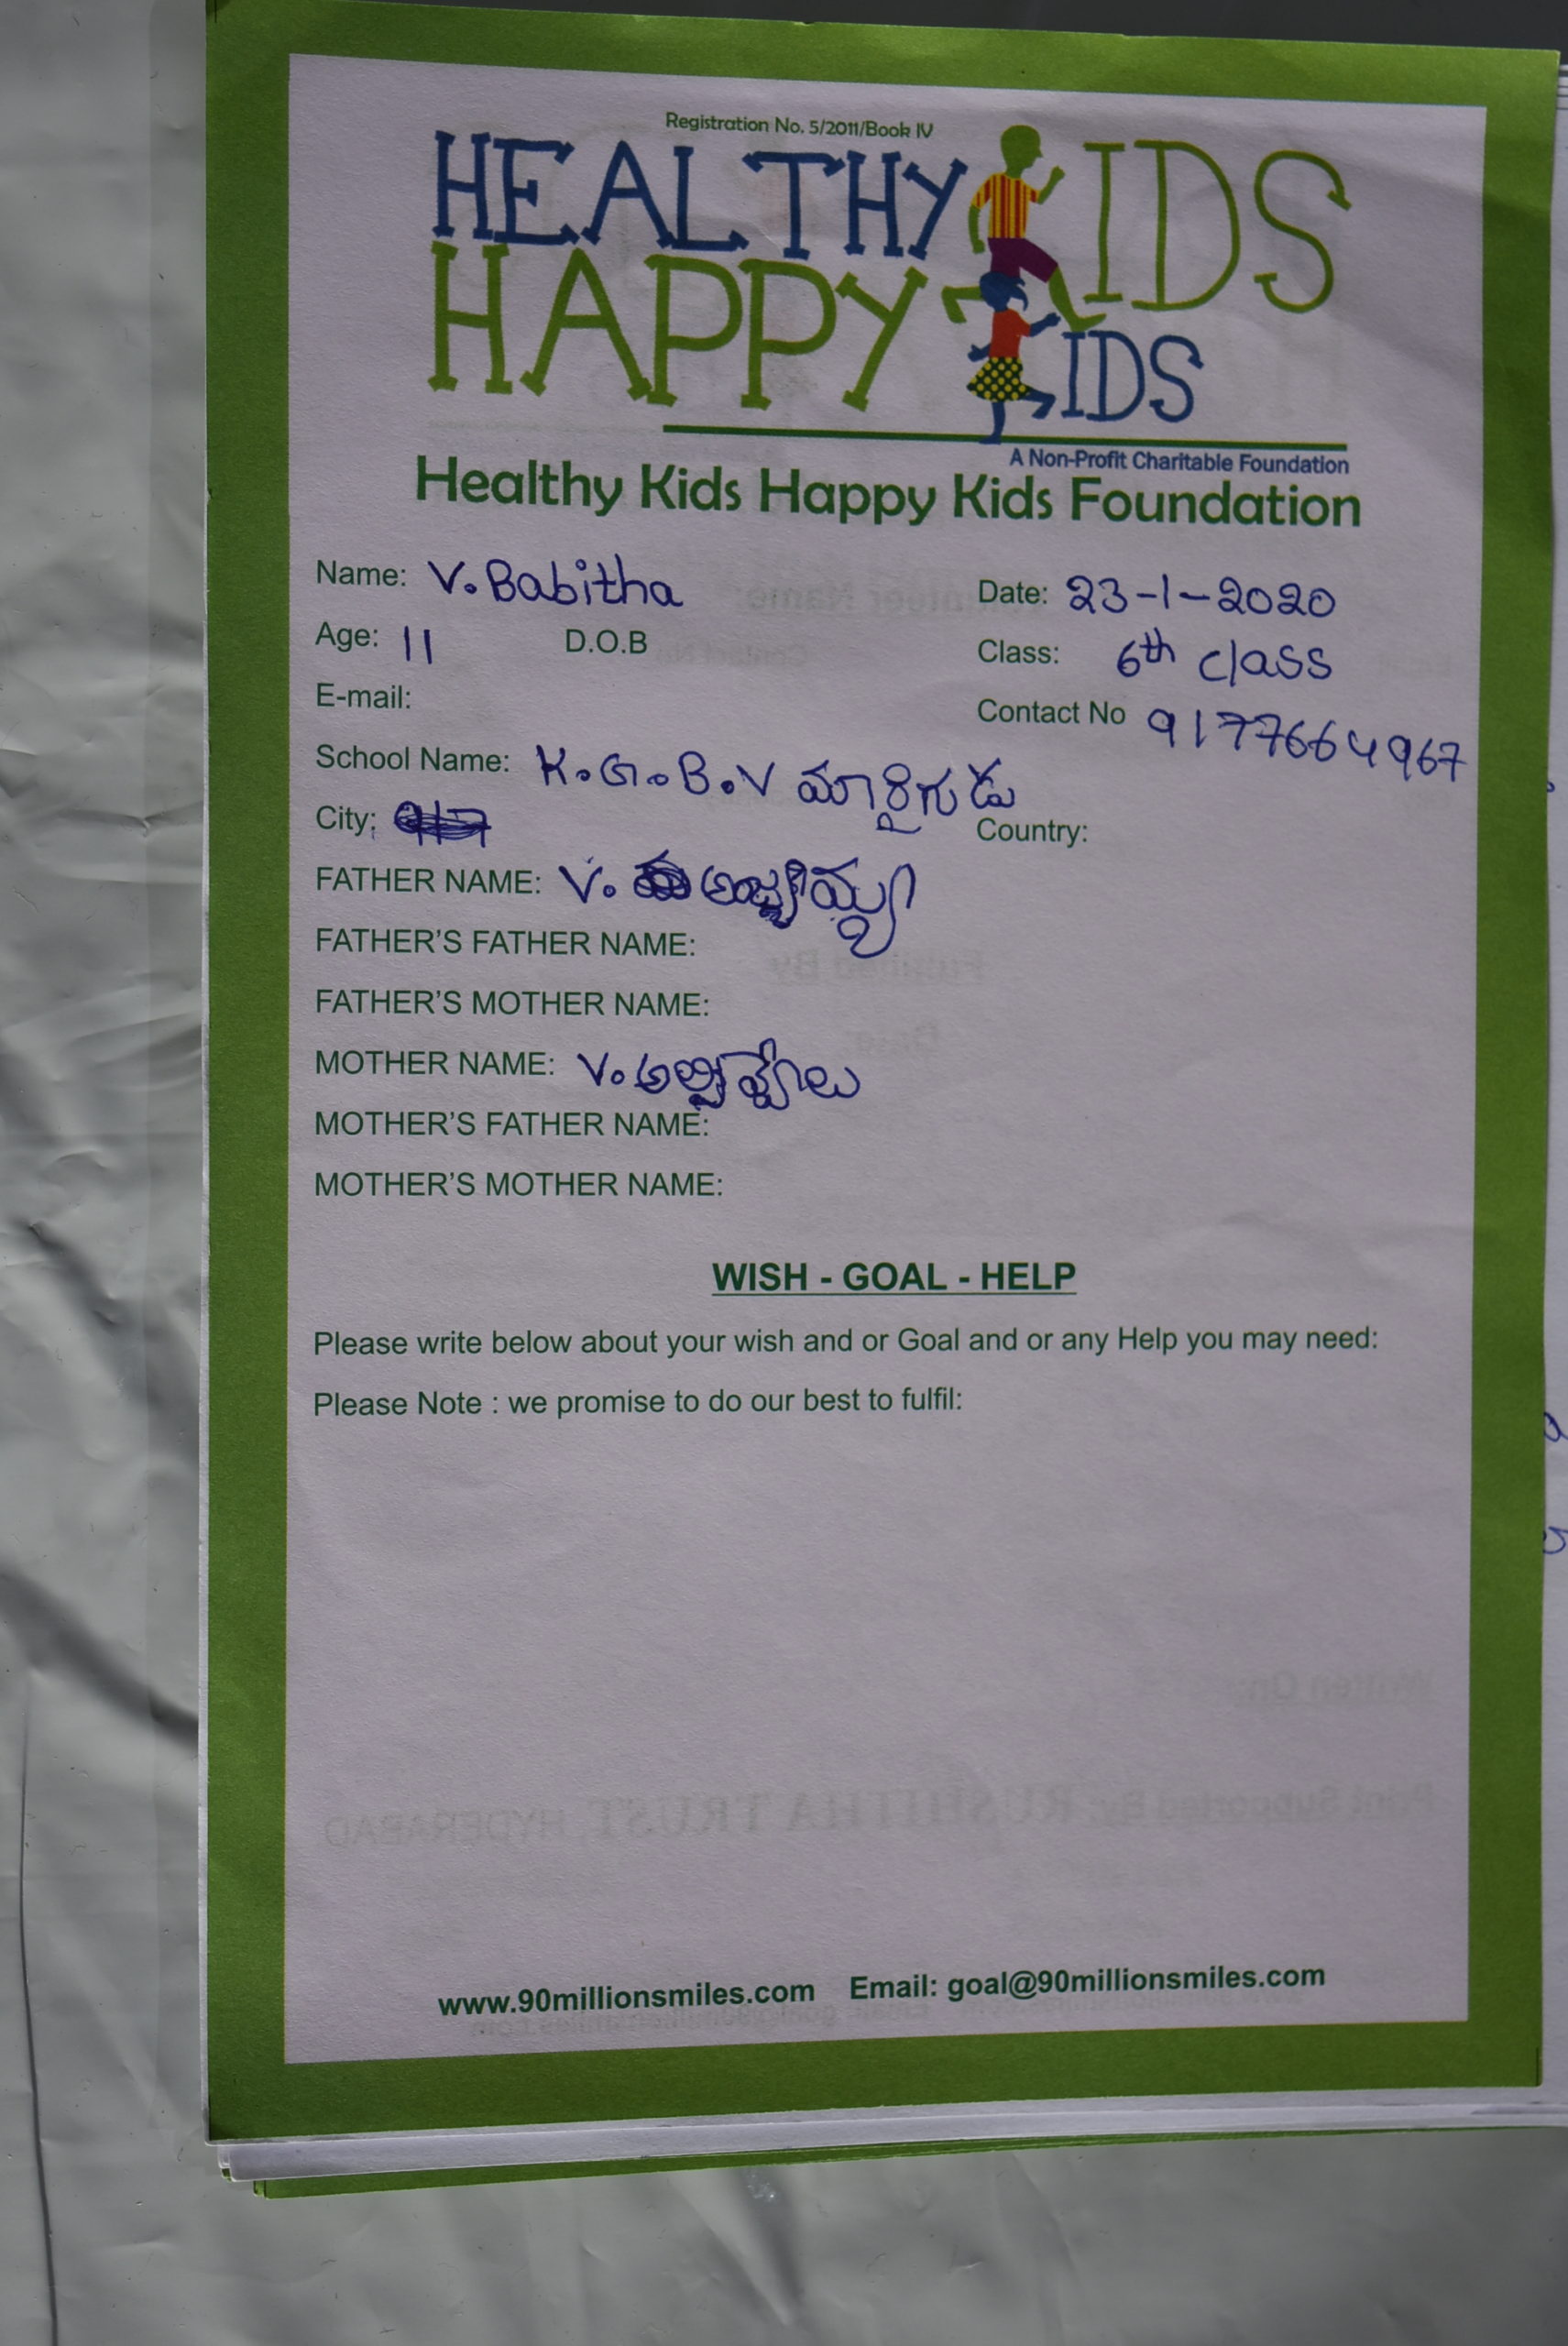 Registration No. 5/2011/Book IV
HEALTHY KIDS
HAPPY KIDS
A Non-Profit Charitable Foundation
Healthy Kids Happy Kids Foundation
Name: V. Babitha Date: 23-1-2020
Age: 11 D.O.B Class: 6th class
E-mail: Contact No 9177664967
School Name: K.G.B.V మారిగుడు
City: Country:
FATHER NAME: V.
FATHER'S FATHER NAME:
FATHER'S MOTHER NAME:
MOTHER NAME: V.
MOTHER'S FATHER NAME:
MOTHER'S MOTHER NAME:
WISH - GOAL - HELP
Please write below about your wish and or Goal and or any Help you may need:
Please Note : we promise to do our best to fulfil:
www.90millionsmiles.com Email: goal@90millionsmiles.com